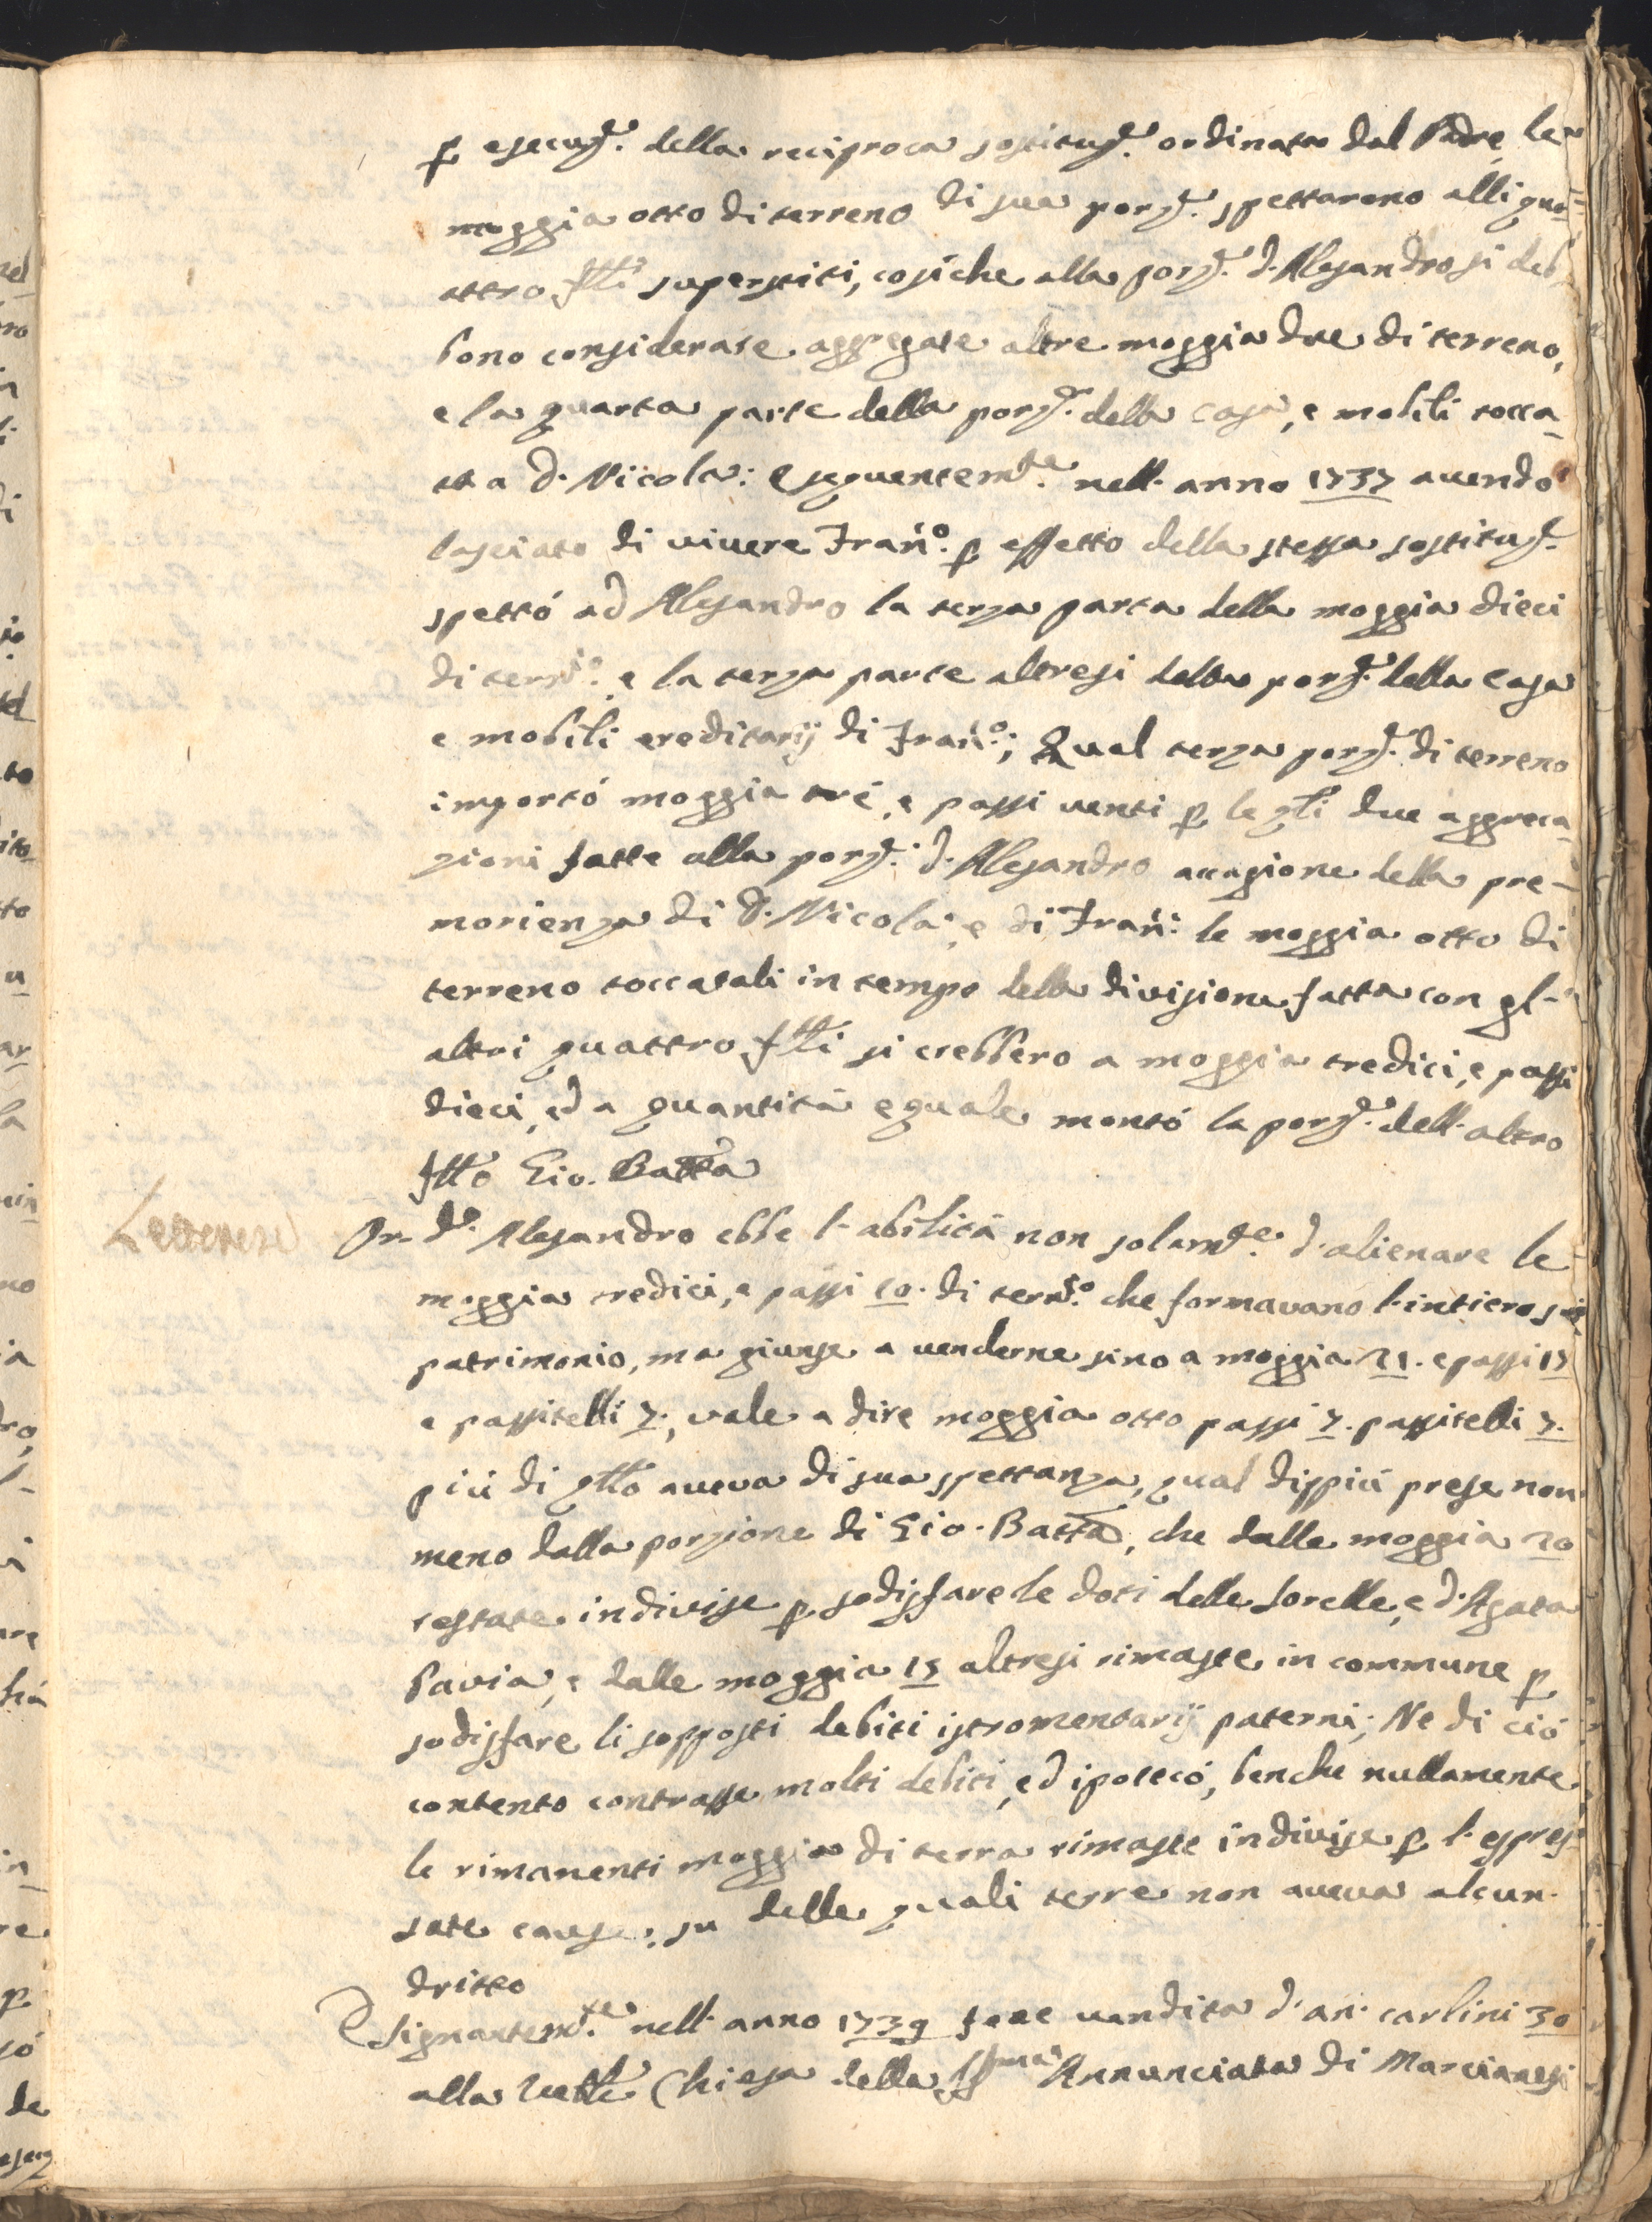 p esecuz.e della reciproca sostituz.e ordinata dal Padre, le
moggia otto di terreno di sua porz.e spettarono alli qua=
ttro f̃lli superstiti, cosiche alla porz.e d'Alesandro si deb
bono considerare aggregate altre moggia due di terreno,
e la quarta parte della porz.e della casa, e mobili tocca
ta a D. Nicola: E seguentem.te nell'anno 1737 avendo
lasciato di vivere Fran.o p effetto della stessa sostituz.e
spettó ad Alesandro la terza parta della moggia dieci
di terr.o e la terza parte altresi della porz.e della casa
e mobili ereditarij di Fran.o; Qual terza porz.e di terreno
importó moggia tré, e passi venti p le q̃li due aggreca
zioni fatte alla porz.e d'Alesandro accagione della pre-
morienza di D. Nicola, e di Fran: le moggia otto di
terreno toccatali in tempo della divisione fatta con gl'
altri quattro f̃lli si crebbero a moggia tredici, e passi
dieci, ed a quantitá eguale montó la porz.e dell'altro
f̃llo Gio. Batta
Or d.o Alesandro ebbe l'abilitá non solam.te d'alienare le
moggia tredici, e passi 10. di terr.o che formavano l'intiero suo
patrimonio, ma giunse a venderne sino a moggia 21. e passi 17
e passitelli 7., vale a dire moggia otto passi 7. passitelli 7.
piú di q̃llo aveva di sua spettanza, qual dippiú prese non
meno dalla porzione di Gio. Batta, che dalle moggia 20
restate indivise p sodisfare le doti delle sorelle, e d'Agata
Pavia, e dalle moggia 15 altresi rimaste in commune p
sodisfare li sopposti debiti istromentarij paterni; Ne di ció
contento contrasse molti debiti, ed ipotecó, benche nullamente
le rimanenti moggia di terra rimaste indivise p l'espres
sate cause; su delle quali terre non aveva alcun
dritto
E Signantem.te nell'anno 1739 fece vendita d'an. carlini 30
alla Chiesa della SS.ma Annunciata di Marcianesi